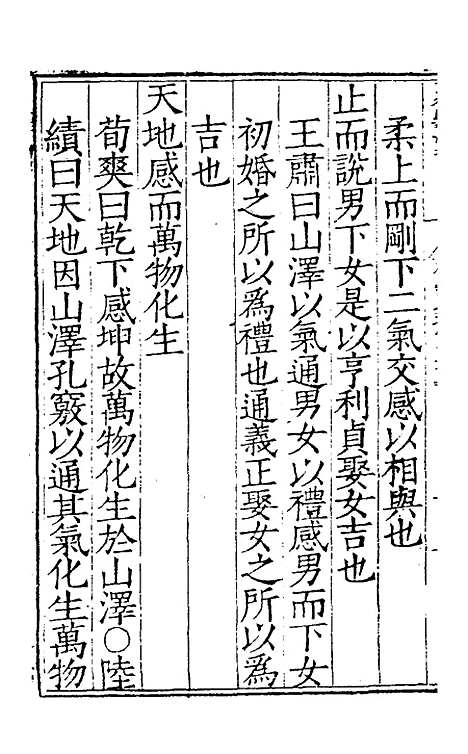 柔上而剛下二氣交感以相與也
止而說男下女是以亨利貞娶女吉也
王肅曰山澤以氣通男女以禮感男而下女
初婚之所以爲禮也通義正娶女之所以爲
吉也
天地感而萬物化生
荀爽曰乾下感坤故萬物化生於山澤○陸
績曰天地因山澤孔竅以通其氣化生萬物